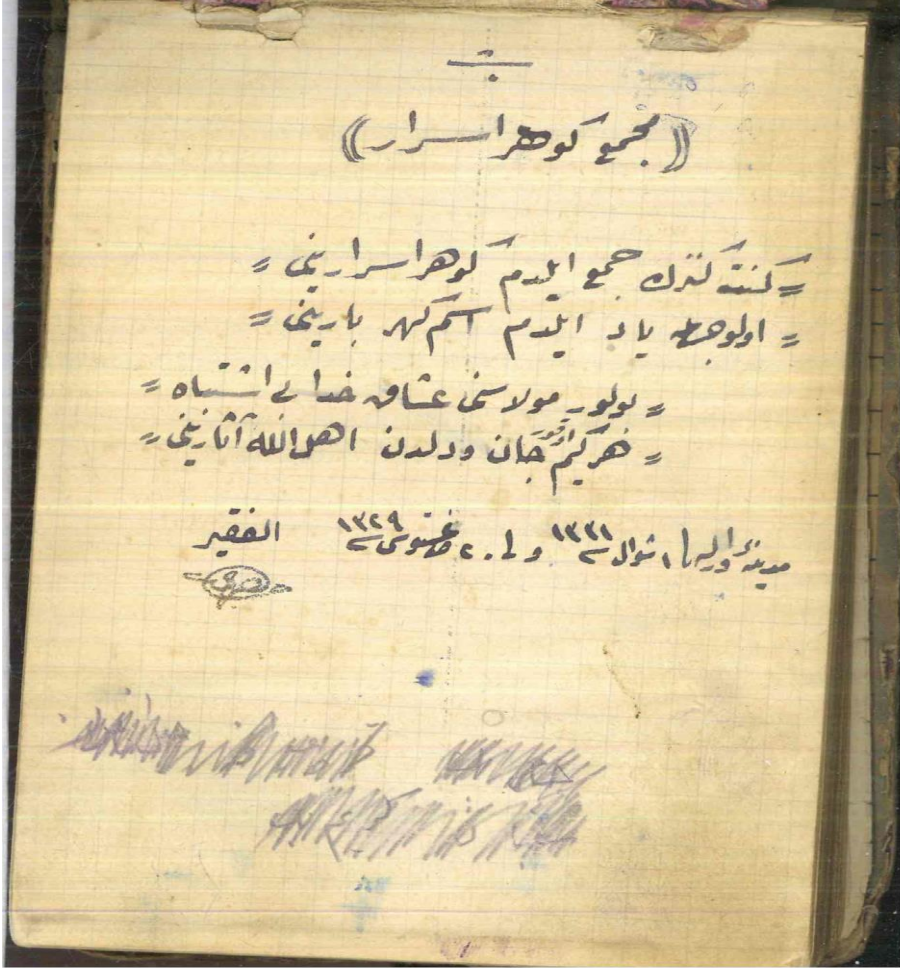 (( مجمع كوهر اسرار ))
= كنت كنزك جمع ايلدم كوهر اسرارينى =
= اولوجه ياد ايلدم اسم كهر بارينى =
= بولور مولاسنى عشاق خدا بى اشتباه =
= هركيم اوقور جان ودلدن اهل الله آثارينى =
١ شوال سنه ١٣٣١ و فى ٢٠ اغستوس سنه ١٣٢٩ الفقير